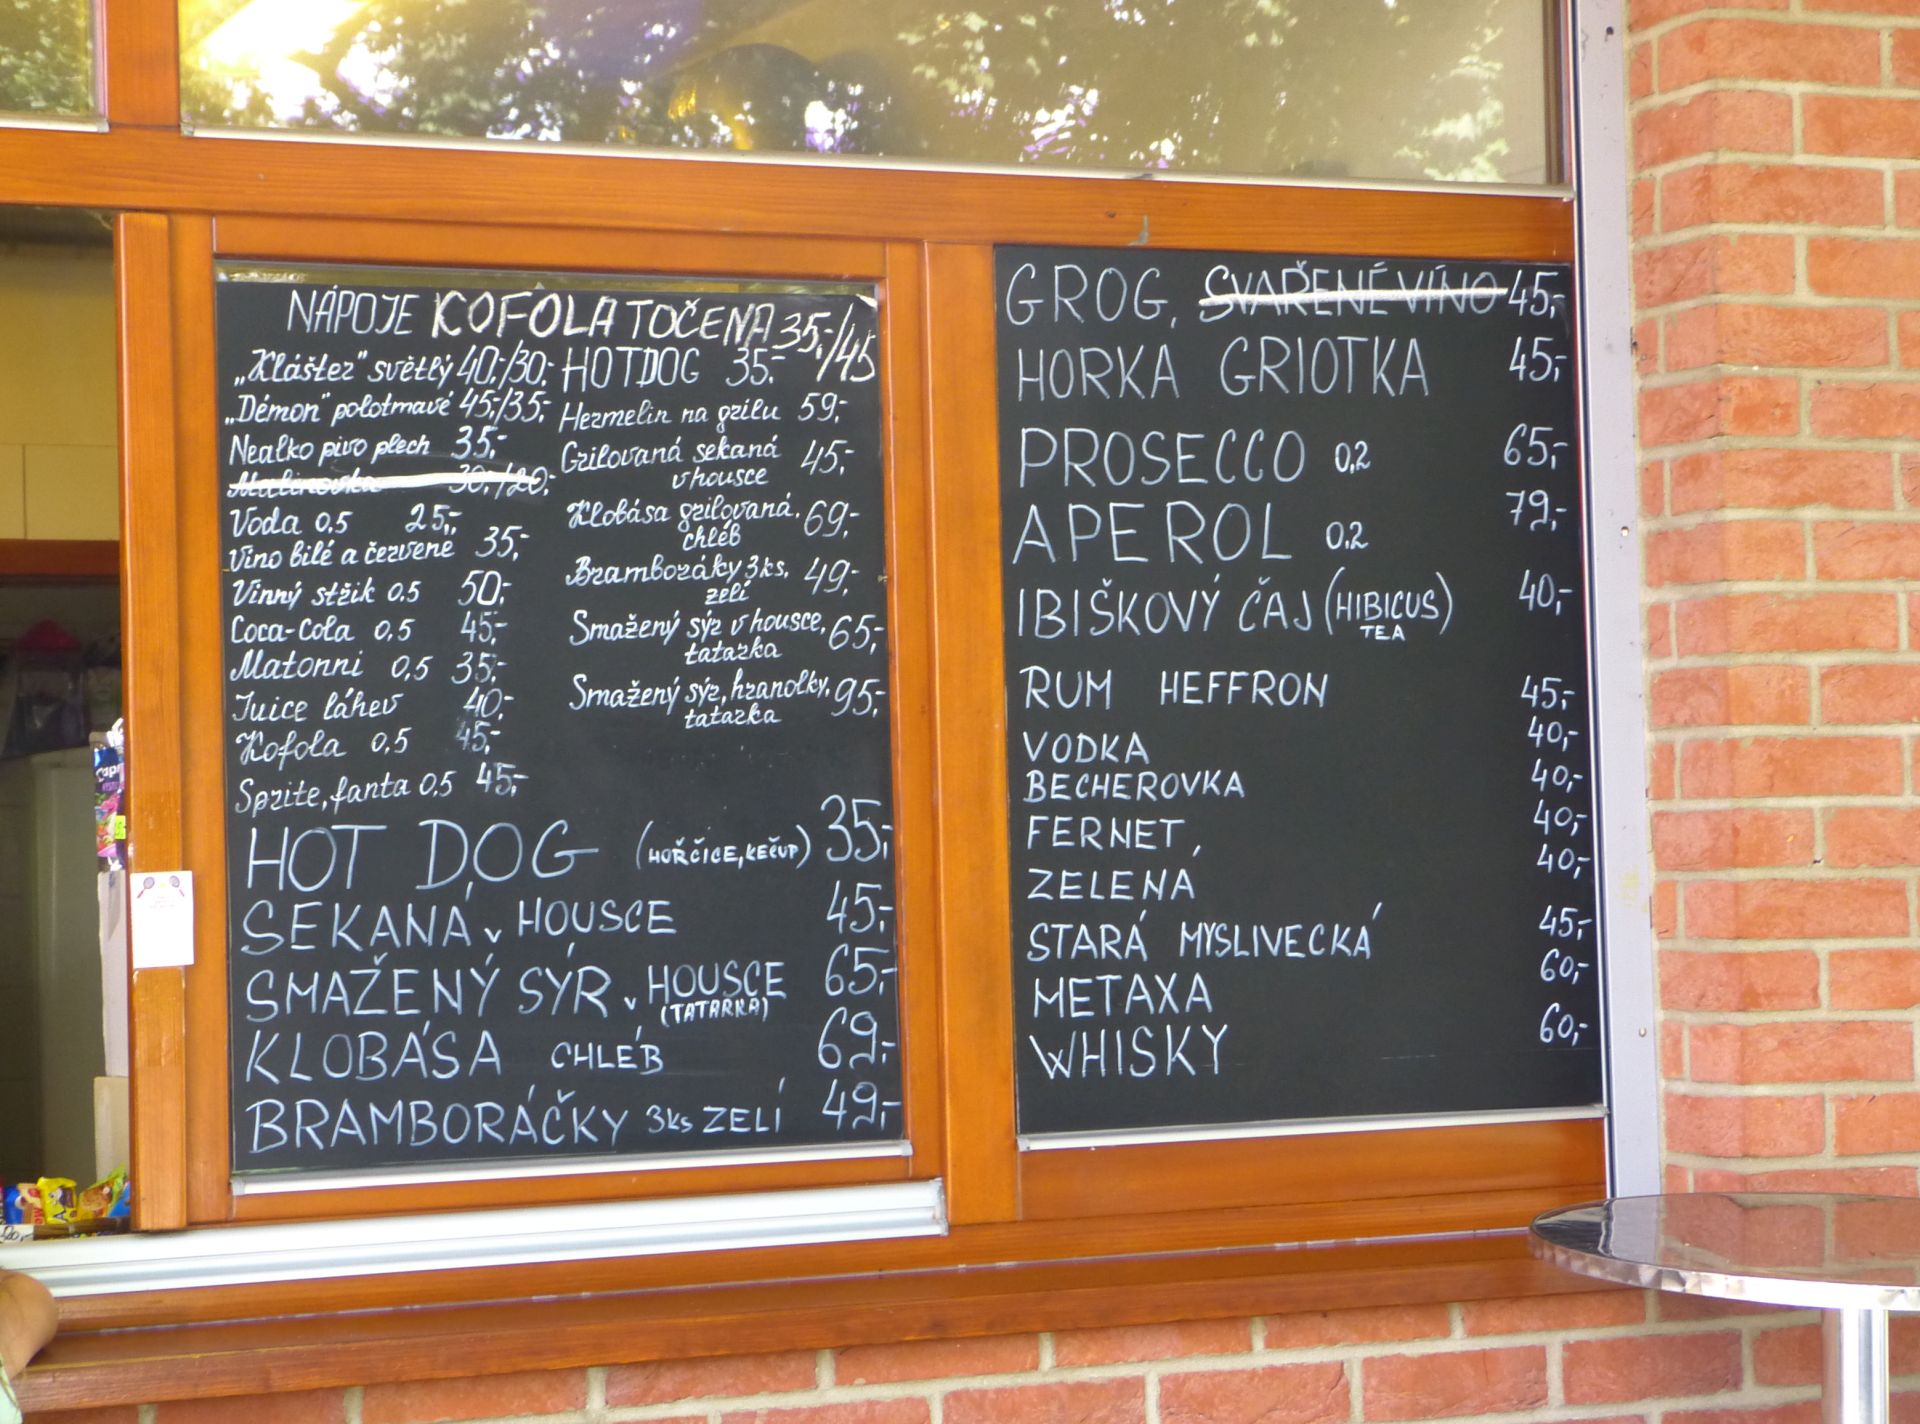 NÁPOJE KOFOLA TOČENA 35,-/45
„Klášter" světlý 40,-/30,-
„Démon" polotmavé 45,-/35,-
Nealko pivo plech 35,-
Malinovka 30,-/20,-
Voda 0.5 25,-
Víno bílé a červené 35,-
Vinný střik 0.5 50,-
Coca-Cola 0,5 45,-
Matonni 0,5 35,-
Juice láhev 40,-
Kofola 0,5 45,-
Sprite, fanta 0,5 45,-
HOTDOG 35.-
Hermelin na grilu 59,-
Grilovaná sekaná
v housce 45,-
Klobása grilovaná,
chléb 69,-
Bramboráky 3ks,
zelí 49,-
Smažený sýr v housce,
tatarka 65,-
Smažený sýr, hranolky,
tatarka 95,-
HOT DOG (HOŘČICE, KEČUP) 35,-
SEKANÁ v HOUSCE 45,-
SMAŽENÝ SÝR v HOUSCE 65,-
(TATARKA)
KLOBÁSA CHLÉB 69,-
BRAMBORÁČKY 3ks ZELÍ 49,-
GROG, SVAŘENÉ VÍNO 45,-
HORKA GRIOTKA 45,-
PROSECCO 0,2 65,-
APEROL 0.2 79,-
IBIŠKOVÝ ČAJ (HIBICUS) 40,-
TEA
RUM HEFFRON 45,-
VODKA 40,-
BECHEROVKA 40,-
FERNET, 40,-
ZELENÁ 40,-
STARÁ MYSLIVECKÁ 45,-
METAXA 60,-
WHISKY 60,-